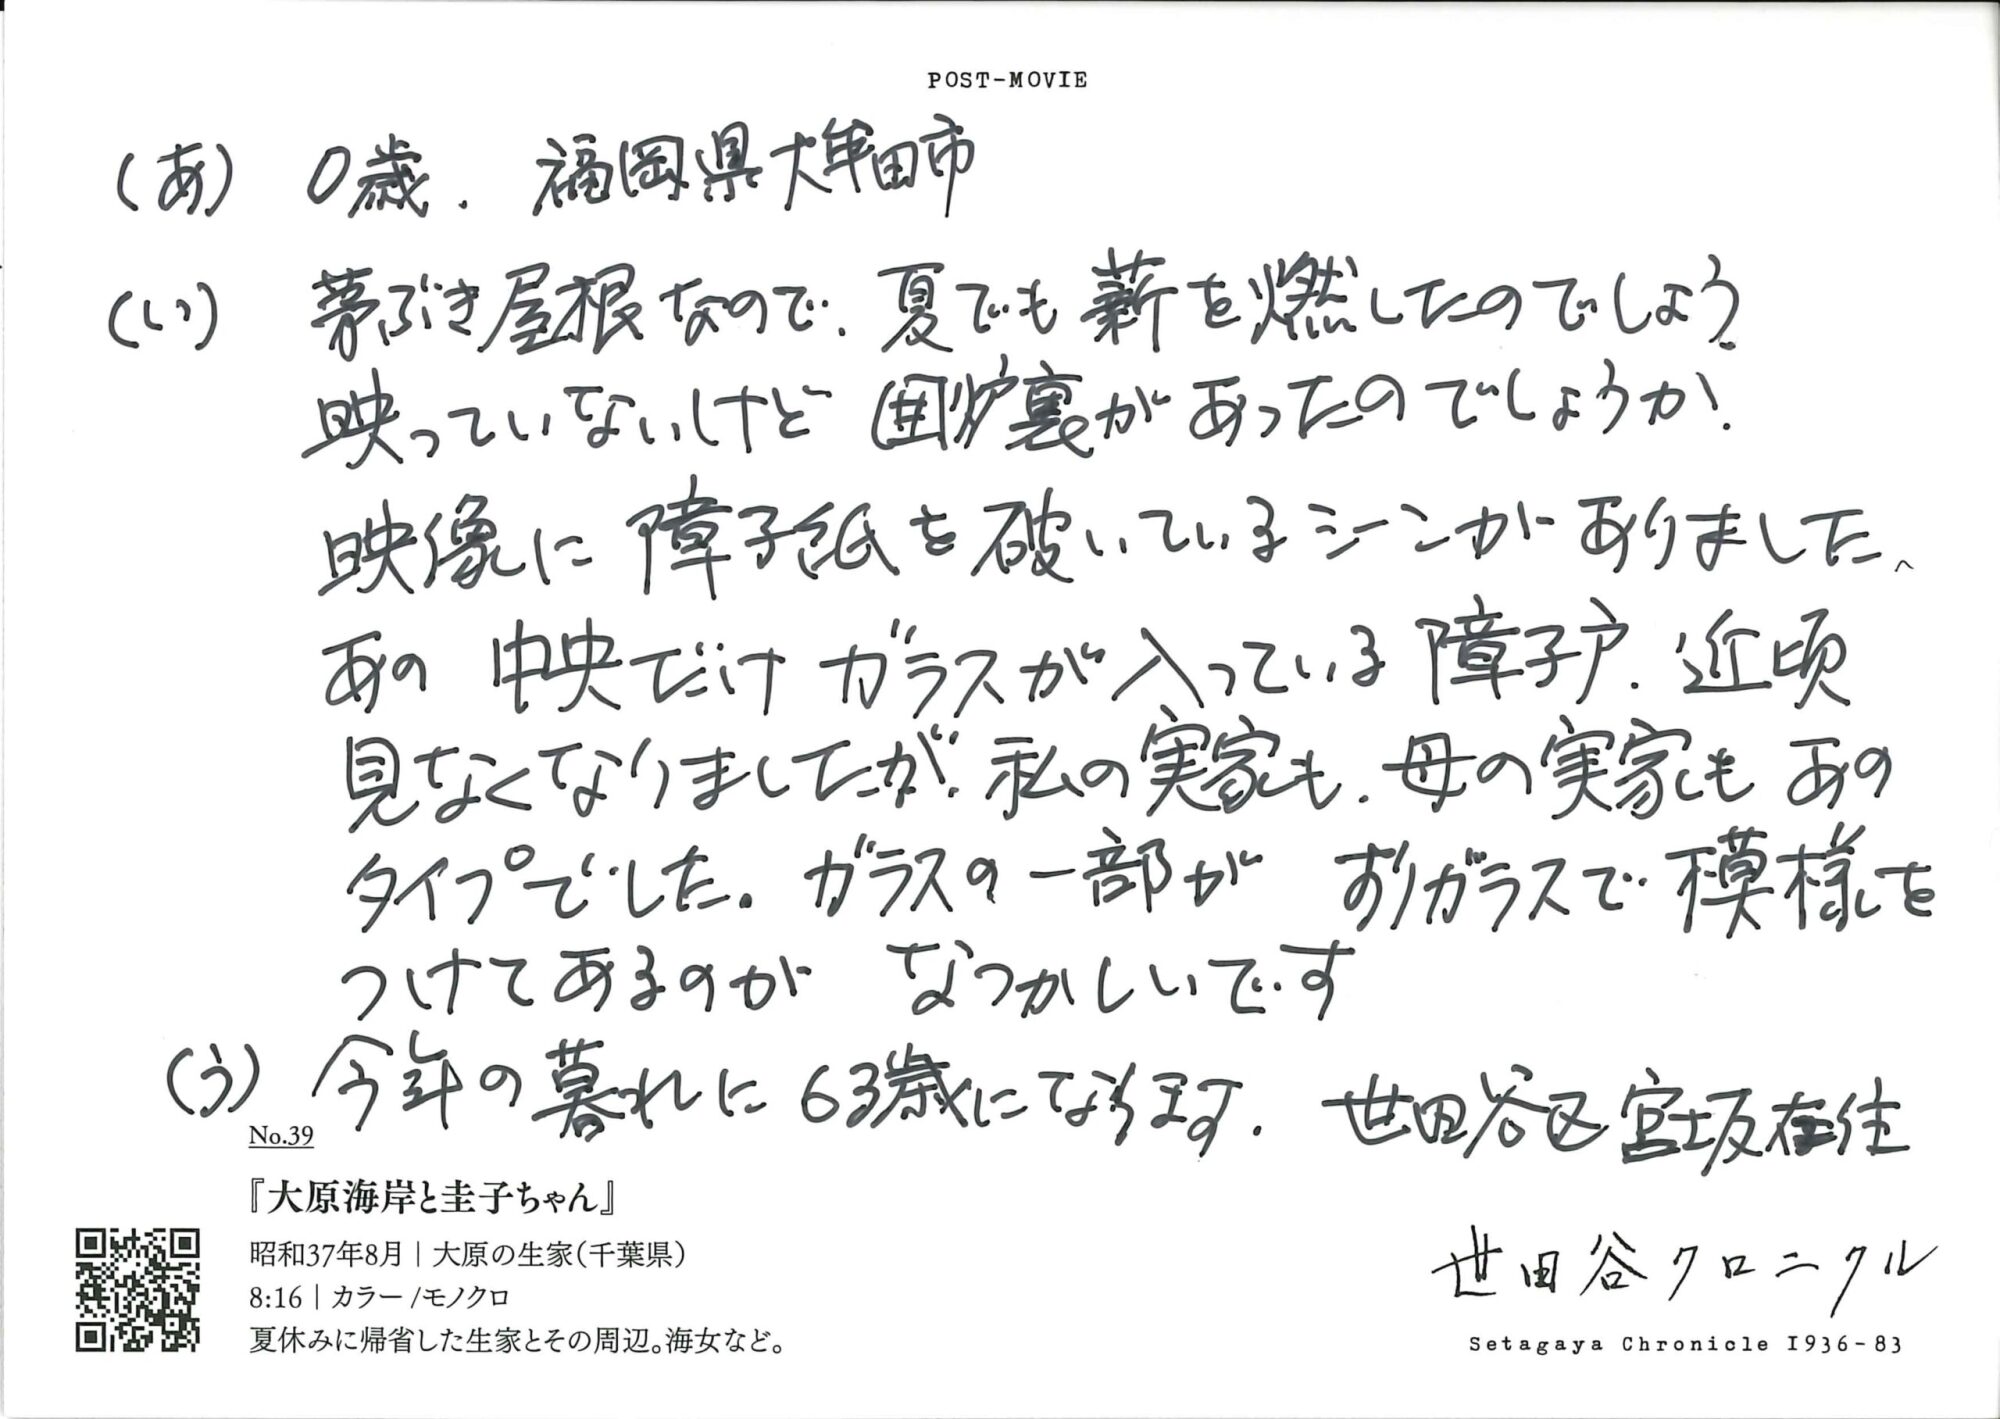 POST-MOVIE
(あ) 0歳. 福岡県大牟田市
(い) 茅ぶき屋根なので、夏でも薪を燃したのでしょう。
映っていないけど 囲炉裏があったのでしょうか。
映像に 障子紙を破いているシーンが ありました。
あの 中央だけ ガラスが入っている 障子戸. 近頃
見なくなりましたが、私の実家も、母の実家も あの
タイプでした。ガラスの一部が すりガラスで 模様を
つけてあるのが なつかしいです
(う) 今年の暮れに 63歳になります. 世田谷区宮坂在住
No.39
『大原海岸と圭子ちゃん』
昭和37年8月｜大原の生家(千葉県)
8:16｜カラー/モノクロ
夏休みに帰省した生家とその周辺。海女など。
世田谷クロニクル
Setagaya Chronicle 1936-83